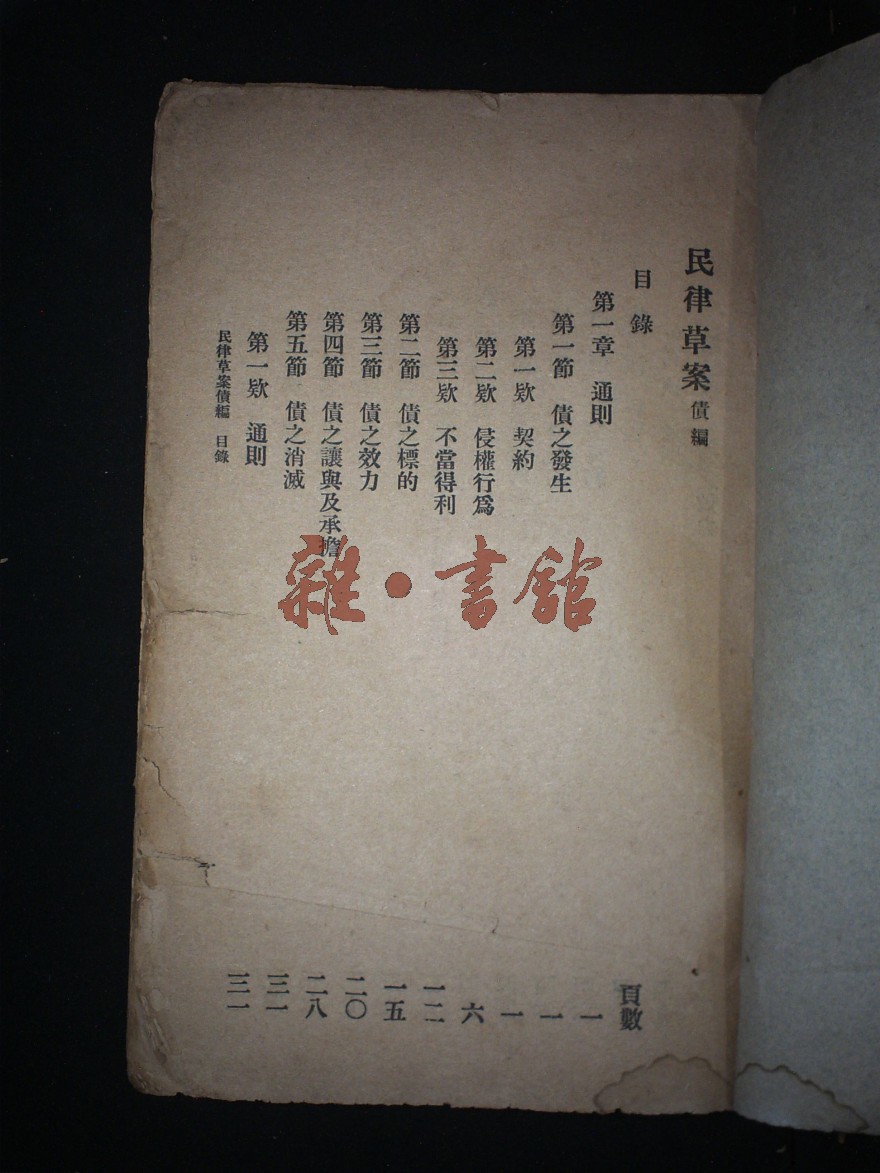 民律草案 債編
目錄 頁數
第一章 通則 一
第一節 債之發生 一
第一欵 契約 一
第二欵 侵權行爲 六
第三欵 不當得利 一二
第二節 債之標的 一五
第三節 債之效力 二〇
第四節 債之讓與及承擔 二八
第五節 債之消滅 三一
第一欵 通則 三一
民律草案債編 目錄
雜·書館